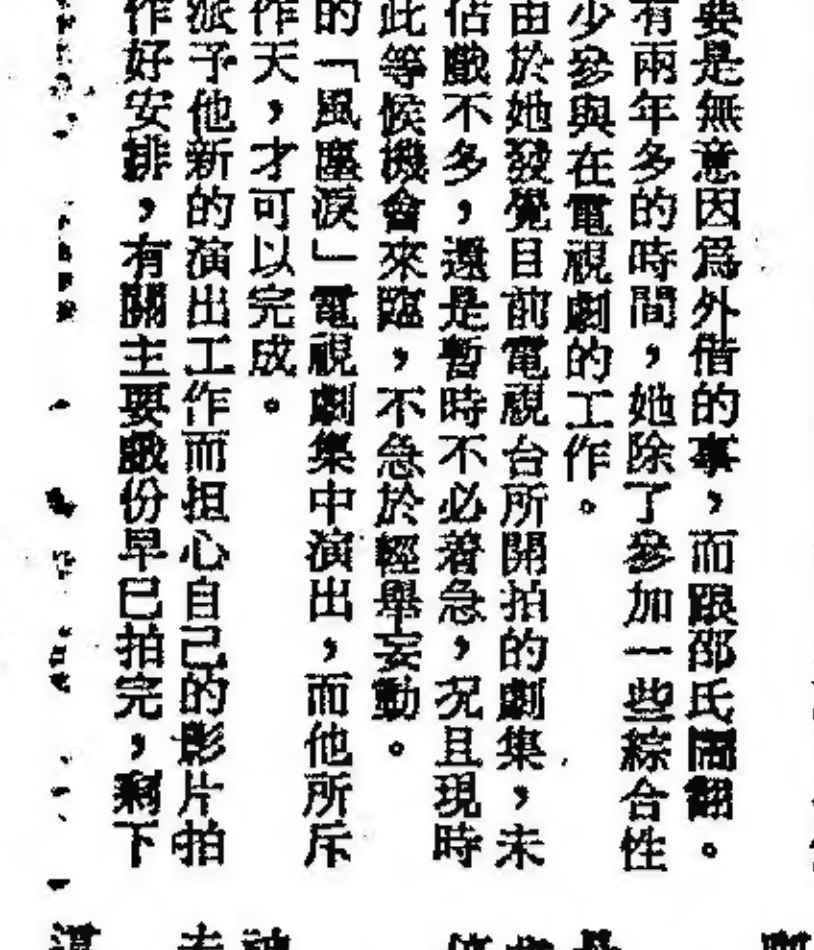 要是無意因爲外借的事，而跟邵氏鬧翻。
有兩年多的時間，她除了參加一些綜合性
少參與在電視劇的工作。
由於她發覺目前電視台所開拍的劇集，未
佔戲不多，還是暫時不必着急，况且現時
此等候機會來臨，不急於輕舉妄動。
的「風塵淚」電視劇集中演出，而他所斥
作天，才可以完成。
派予他新的演出工作而担心自己的影片拍
作好安排，有關主要戲份早已拍完，剩下